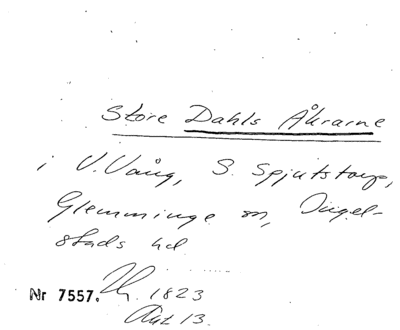 Store Dahls Åkrarne
i V. Vång, S. Spjutstorp,
Glemminge sn, Ingel-
stads hd
Nr 7557. 1823
Akt 13.